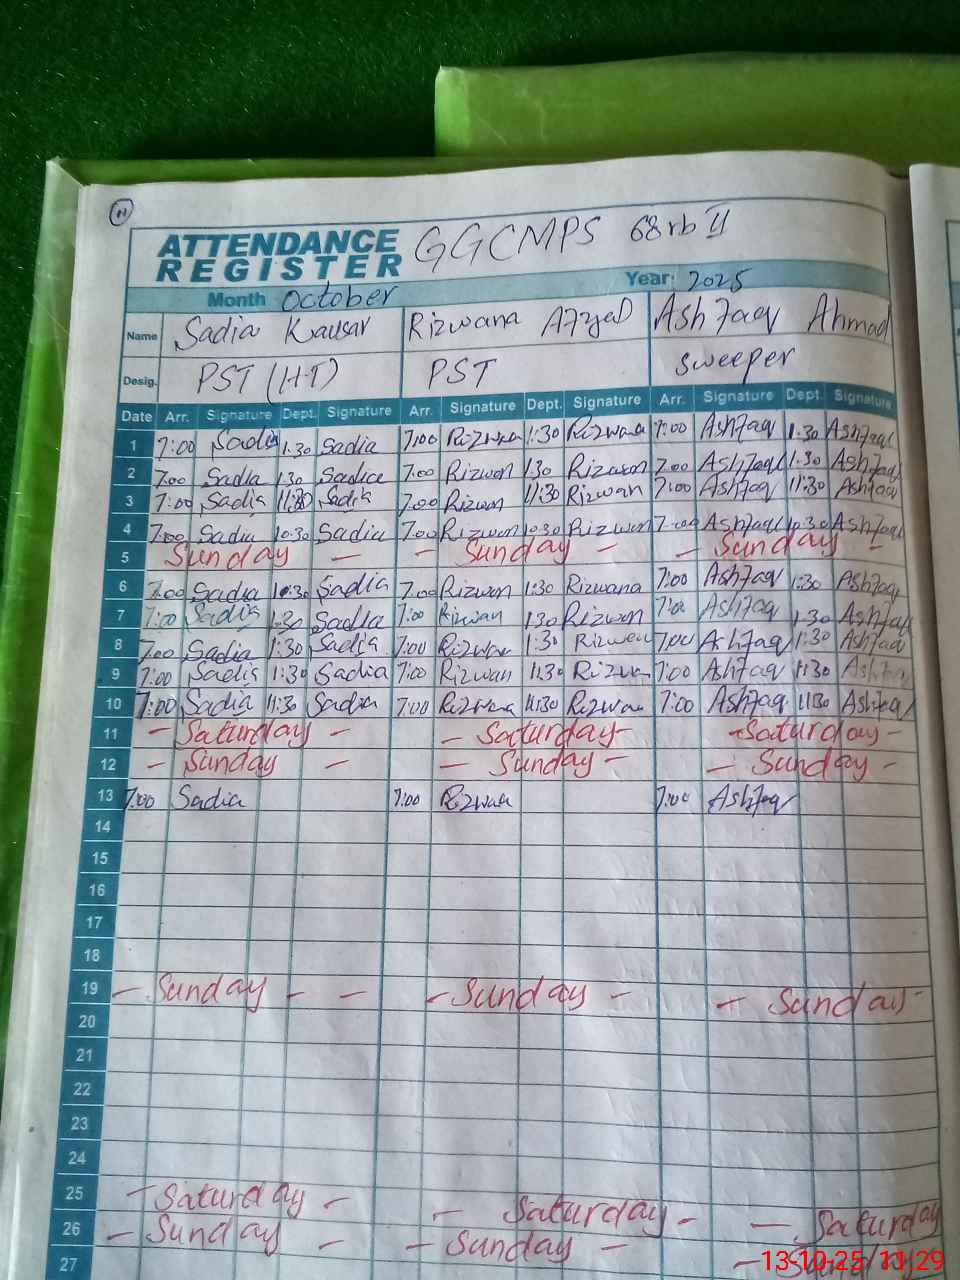 11
ATTENDANCE REGISTER GGCMPS 68rb II
Month October Year: 2025
Name Sadia Kausar Rizwana Afzal Ashfaq Ahmad
Desig. PST (H·T) PST sweeper
Date Arr. Signature Dept. Signature Arr. Signature Dept. Signature Arr. Signature Dept. Signature
1 7:00 Sadia 1:30 Sadia 7:00 Rizwana 1:30 Rizwana 7:00 Ashfaq 1:30 Ashfaq
2 7:00 Sadia 1:30 Sadia 7:00 Rizwan 1:30 Rizwan 7:00 Ashfaq 1:30 Ashfaq
3 7:00 Sadia 11:30 Sadia 7:00 Rizwan 11:30 Rizwan 7:00 Ashfaq 11:30 Ashfaq
4 7:00 Sadia 10:30 Sadia 7:00 Rizwan 10:30 Rizwan 7:00 Ashfaq 10:30 Ashfaq
5 Sunday - - Sunday - - Sunday -
6 7:00 Sadia 1:30 Sadia 7:00 Rizwan 1:30 Rizwana 7:00 Ashfaq 1:30 Ashfaq
7 7:00 Sadia 1:30 Sadia 7:00 Rizwan 1:30 Rizwan 7:00 Ashfaq 1:30 Ashfaq
8 7:00 Sadia 1:30 Sadia 7:00 Rizwan 1:30 Rizwan 7:00 Ashfaq 1:30 Ashfaq
9 7:00 Sadia 11:30 Sadia 7:00 Rizwan 11:30 Rizwan 7:00 Ashfaq 11:30 Ashfaq
10 7:00 Sadia 11:30 Sadia 7:00 Rizwana 11:30 Rizwan 7:00 Ashfaq 11:30 Ashfaq
11 - Saturday - - Saturday - - Saturday -
12 - Sunday - - Sunday - - Sunday -
13 7:00 Sadia 7:00 Rizwan 7:00 Ashfaq
14
15
16
17
18
19 - Sunday - - - Sunday - - Sunday -
20
21
22
23
24
25 - Saturday - - Saturday - - Saturday
26 - Sunday - - Sunday - - Sunday
27
13-10-25 11:29